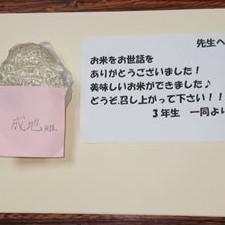 先生へ
お米をお世話を
ありがとうございました！
美味しいお米ができました♪
どうぞ召し上がって下さい！！
３年生　一同より
成地